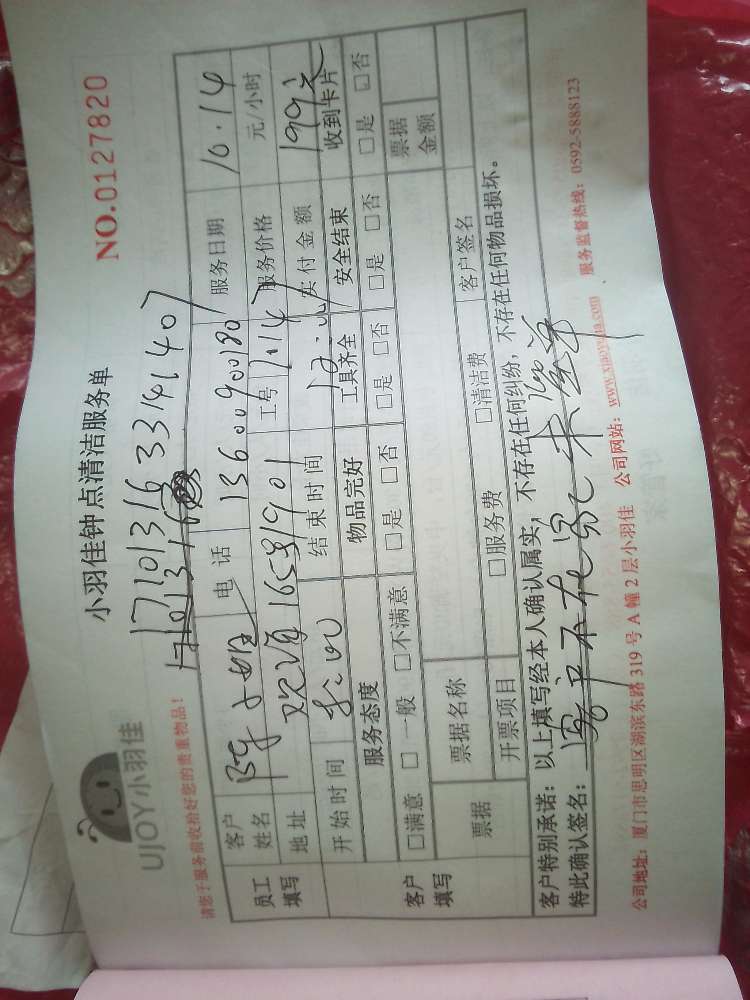 UJOY小羽佳
小羽佳钟点清洁服务单
NO.0127820
17101316 3314140 7
请您于服务前收拾好您的贵重物品！
员工填写
客户姓名 小姐 电话 13600900180 服务日期 10.14
地址 欢 1901 工号 1147 服务价格 元/小时
开始时间 8:00 结束时间 12:00 实付金额 199元
客户填写
服务态度 物品完好 工具齐全 安全结束 收到卡片
□满意 □一般 □不满意 □是 □否 □是 □否 □是 □否 □是 □否
票据 票据名称 客户签名 票据金额
开票项目 □服务费 □清洁费
客户特别承诺：以上填写经本人确认属实，不存在任何纠纷，不存在任何物品损坏。
特此确认签名：客户不在家 签单
公司地址：厦门市思明区湖滨东路 319 号 A 幢 2 层小羽佳 公司网站：www.xiaoyujia.com 、服务监督热线：0592-5888123